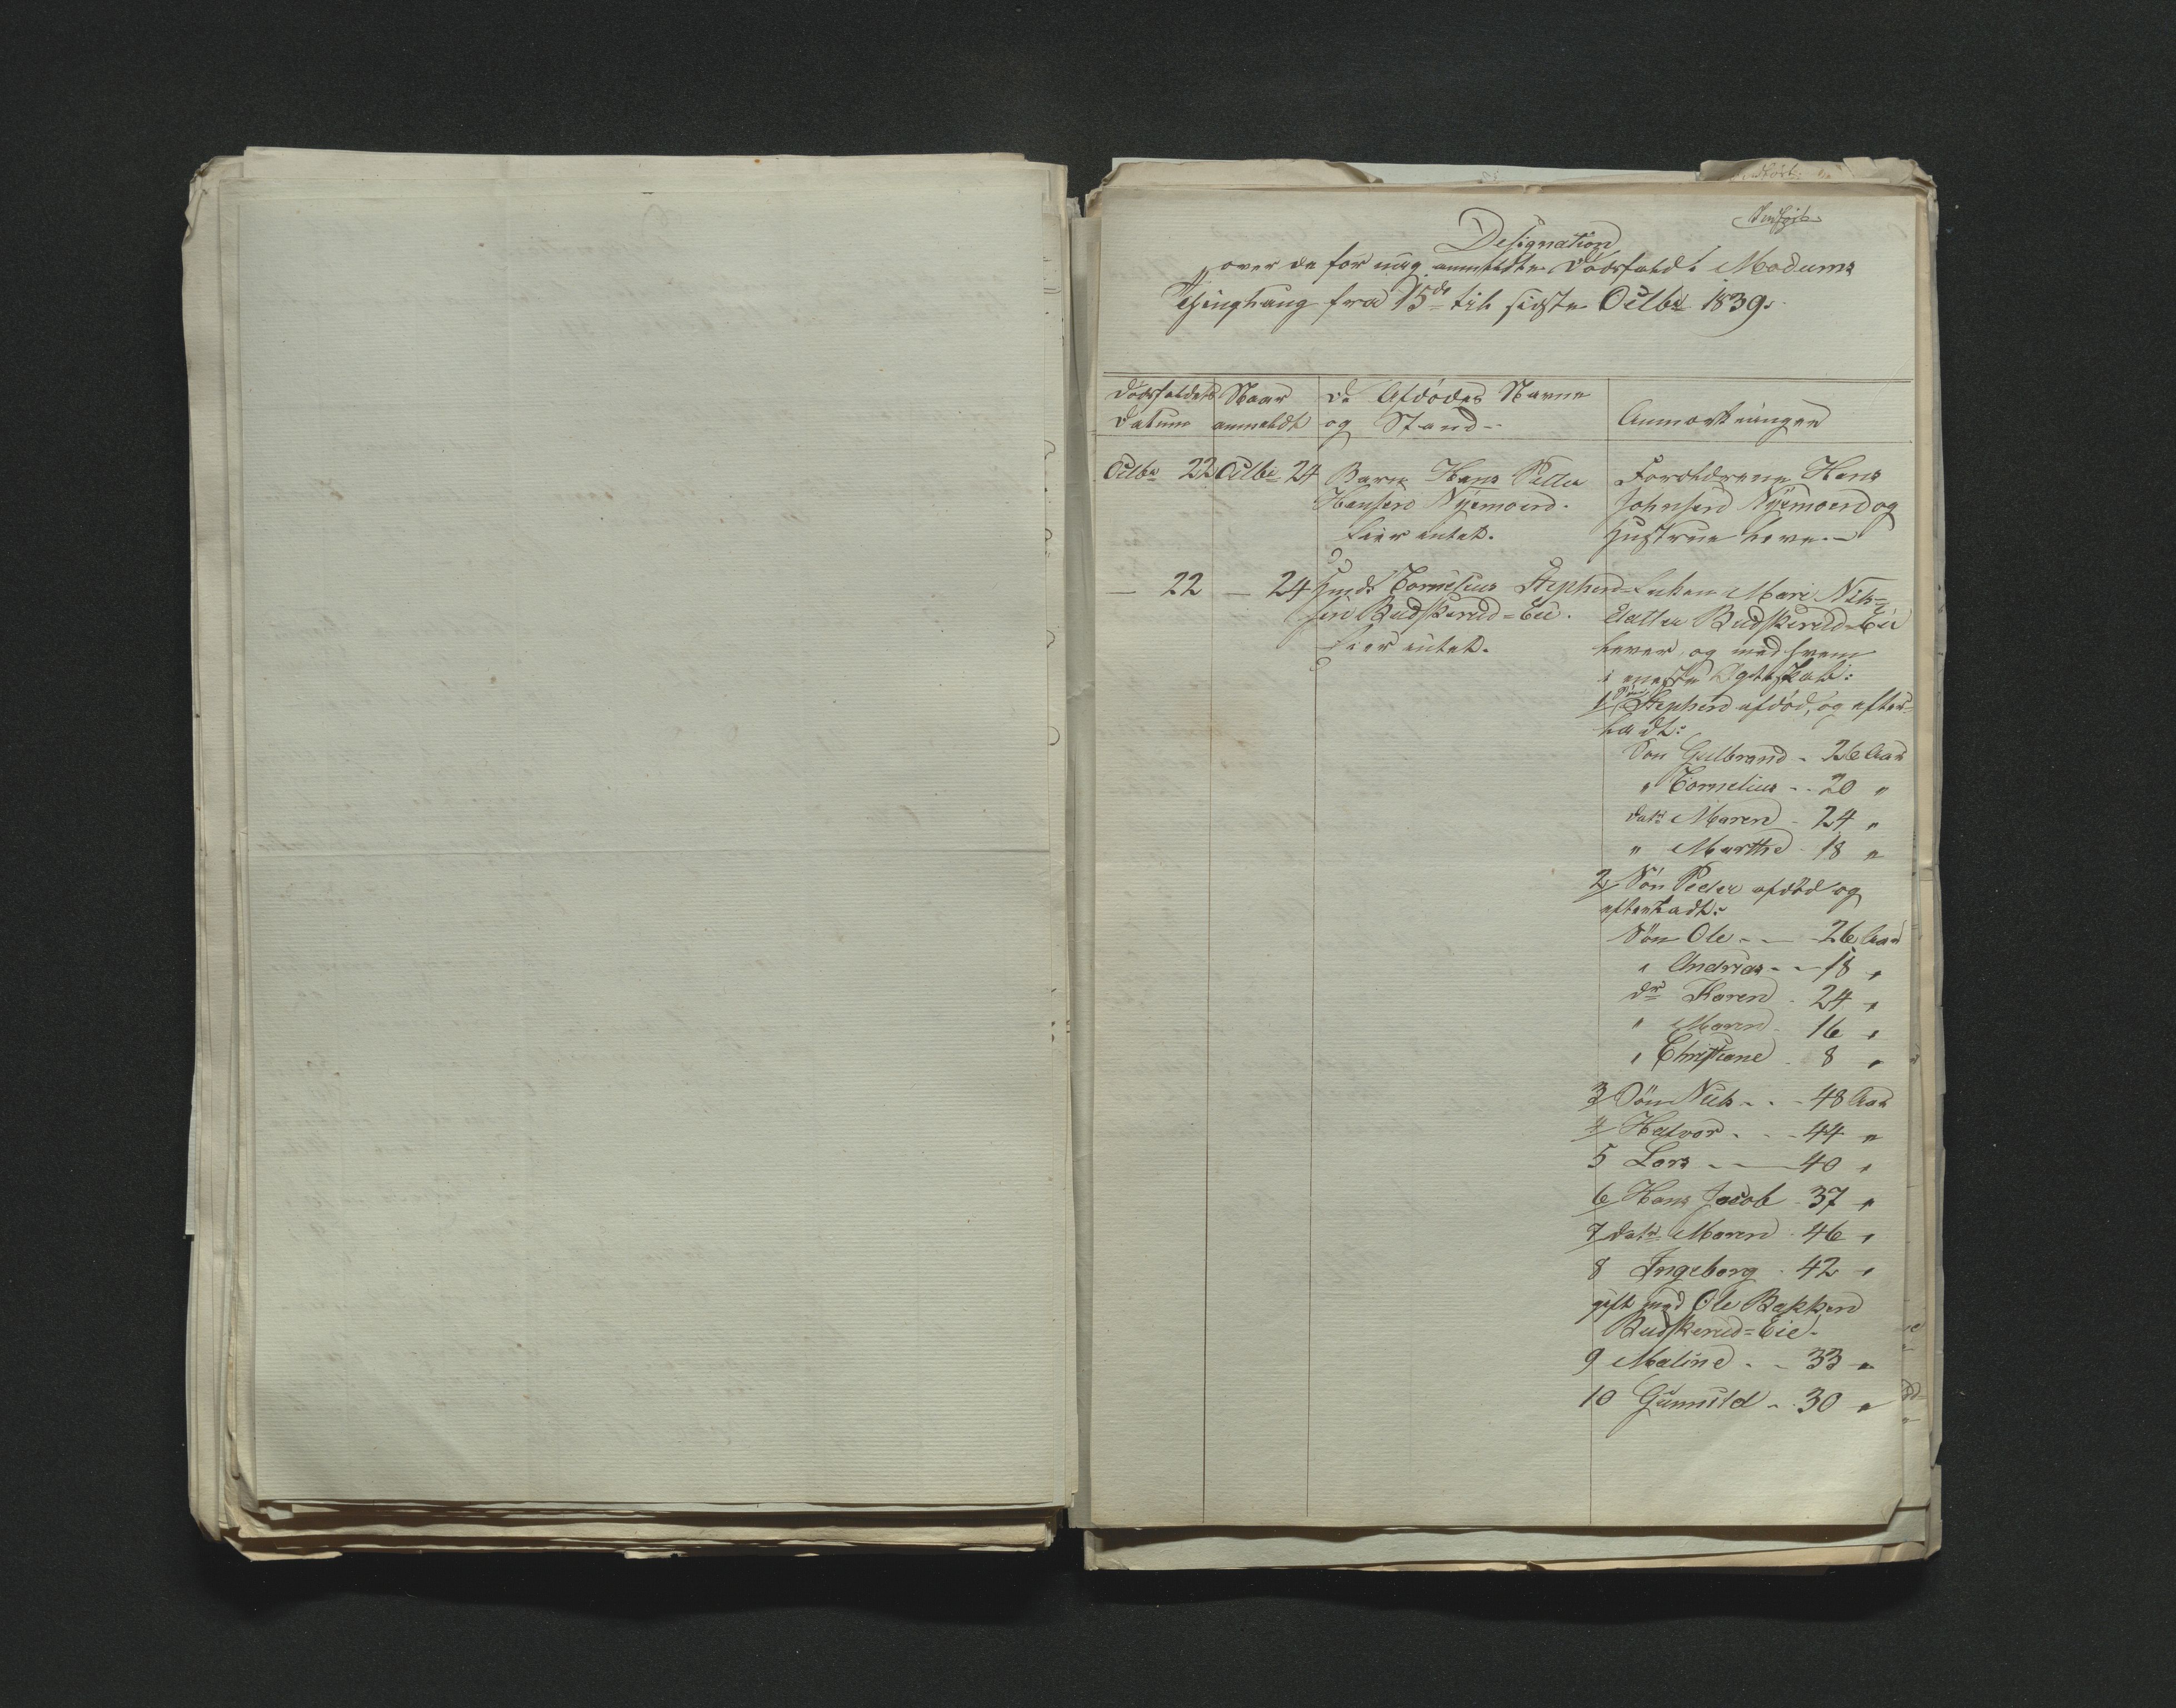 Designation
over de for mig anmeldte Dødsfald i Modums
Thinglaug fra 15de til sidste Octbr 1839.
Dødsfaldets Datum
Naar anmeldt
De Afdødes Navne og Stand
Anmærkninger
Octbr 22 Octbr 24 Barn Hans Peter
Hansen Nyemoen.
Eier intet.
Forældrene Hans
Johnsen Nyemoen og
Hustrue leve.
— 22 — 24 Huusmd: Cornelius Stephen=
sen Buskerud=Eie.
Eier intet.
Enken Mari Niels=
datter Buskerud=Eie
lever, og med hvem
i eneste Ægteskab:
1/ Søn Stephen afdød, og efter-
ladt:
Søn Gulbrand - 26 Aar
" Cornelius - - 20 "
datr Maren - 24 "
" Marthe - 18 "
2/ Søn Peder afdød og
efterladt:
Søn Ole - — 26 Aar
" Andreas - - 18 "
dr Karen - 24 "
" Maren - 16 "
" Christiane - 8 "
3/ Søn Niels - - - 48 Aar
4/ Halvor - - - 44 "
5 Lars - — 40 "
6/ Hans Jacob - 37 "
7/ datr Maren - 46 "
8 Ingeborg - 42 "
gift med Ole Bakken
Buskerud=Eie.
9 Maline - - 33 "
10 Gunnild - 30 "